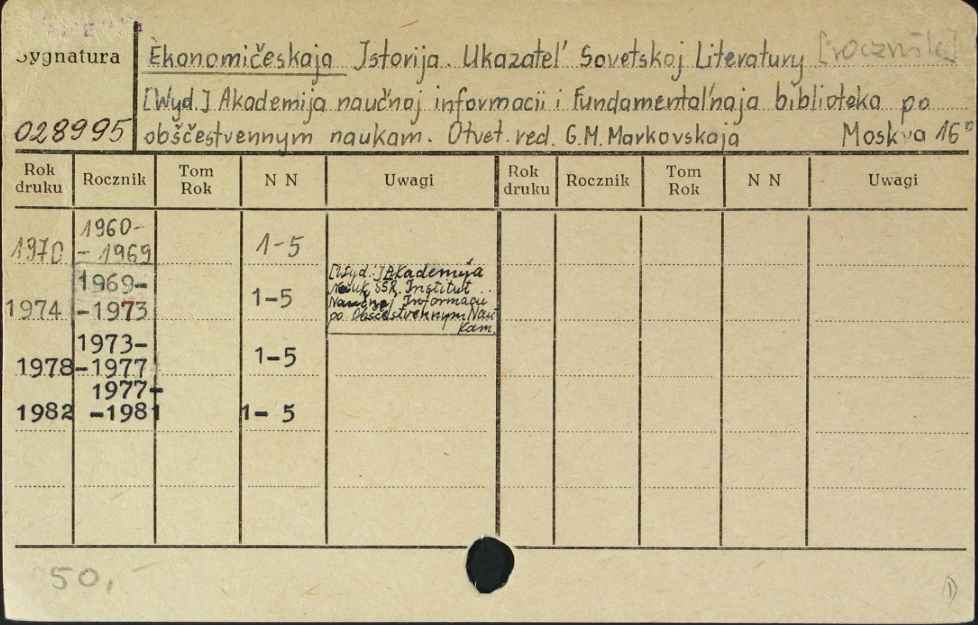 Sygnatura
Ėkonomičeskaja Istorija. Ukazatel' Sovetskoj Literatury [rocznik]
[Wyd.] Akademija naučnoj informacii i Fundamental'naja biblioteka po
028995 obščestvennym naukam. Otvet. red. G.M. Markovskaja Moskva 16°
Rok druku Rocznik Tom Rok N N Uwagi Rok druku Rocznik Tom Rok N N Uwagi
1970 1960-
- 1969 1-5
1974 1969-
-1973 1-5 [Wyd.:] Akademija
Nauk SSR. Institut
Naučnoj Informacii
po Obščestvennym Nau
kam.
1978 1973-
-1977 1-5
1982 1977-
-1981 1- 5
50,-
1